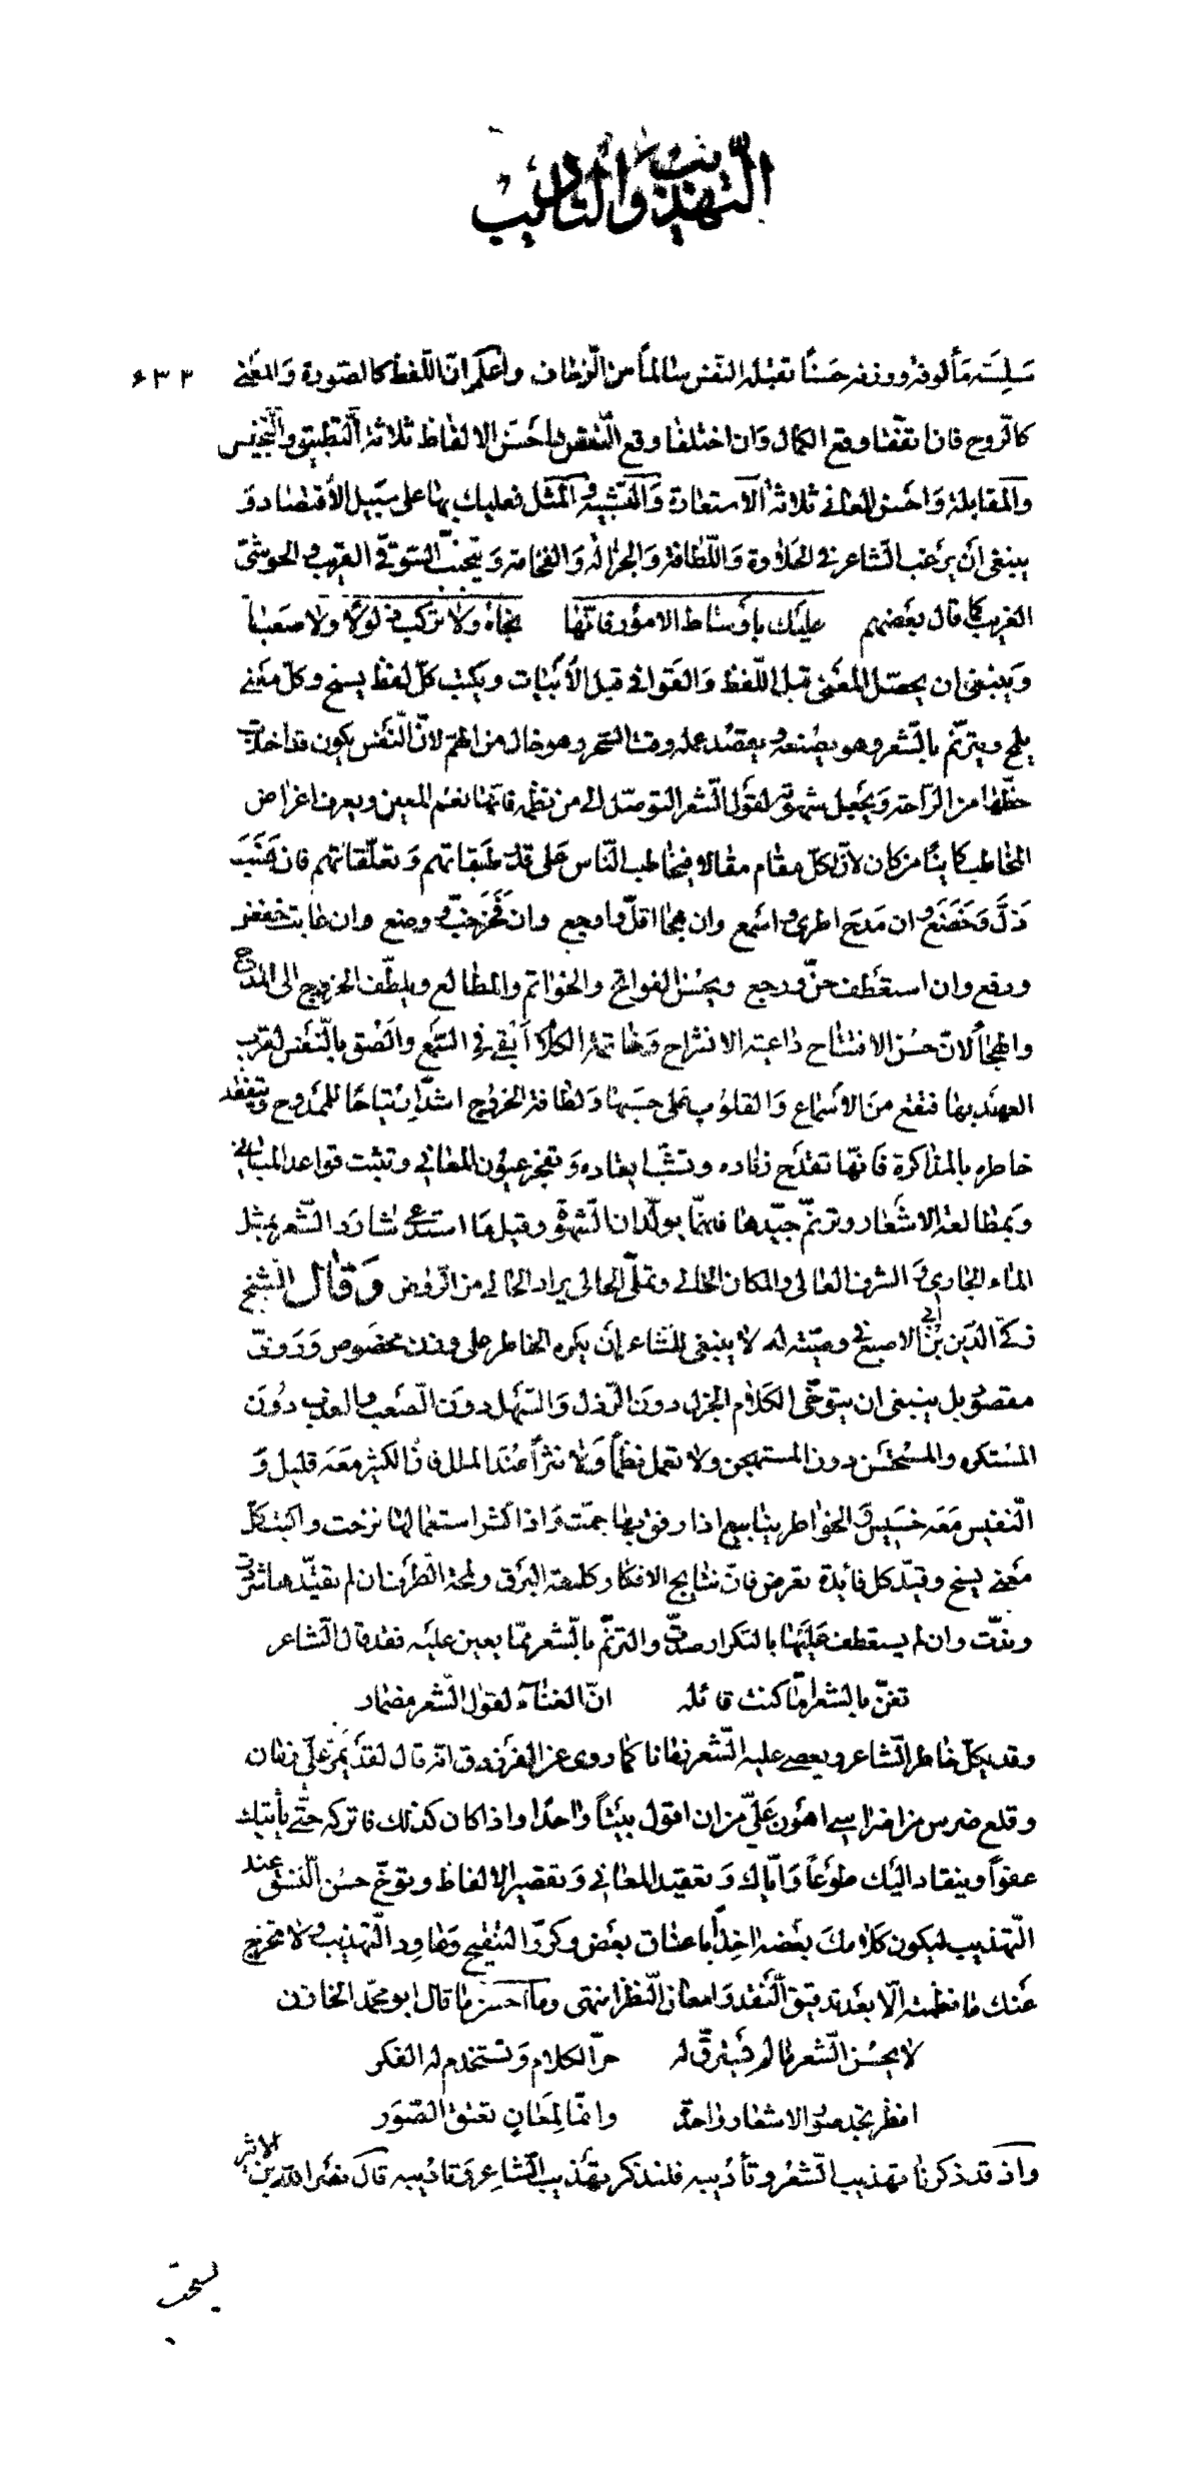 التهذيب والتأديب
سَلِسَة مَألوفة ووزنه حَسَنًا تقبله النَّفس سالمًا من الزّحاف واعلم انّ اللّفظ كالصّورة وَالمَعْنى ٦٣٣
كالرّوح فان اتّفقا وقع الكمال وَان اختلفا وقع النّقص فاحسَن الالفاظ ثلاثة التطبيق والتّجنيس
والمقابلة وَاحسَن المعانى ثلاثة الاستعارة وَالتّشبيه والمثل فعليك بها على سَبيل الأقتصاد وَ
ينبغى أن يرغب الشّاعر فى الحَلاوة وَاللّطافة وَالجزالة وَالفخامة وَيتجنّب السّوقىّ القريب والحوشىّ
الغريب كما قال بعضهم عليك بأوساط الامور فانّها نجاة ولا تركب ذلولًا ولا صعبا
وَينبغى ان يحصّل المعنى قبل اللّفظ وَالقوافى قبل الأبيات ويكتب كلّ لفظ يسنح وكلّ معنى
يلمح ويترنّم بالشّعر وهو يصنعه ويقصد عمله وقت السّحر وهو خال من الهمّ لانّ النّفس يكون قد اخذت
حظّها من الرّاحة وَيجعل شهوته لقول الشّعر التوصّل الى من نظمه فانها نعم المعين ويعرف اغراض
المخاطب كاينًا من كان لأنّ لكلّ مقام مقالا فيخاطب النّاس على قدر طبقاتهم وَتعلّقاتهم فان نَسَبَ
ذلّ وَخضع وان مَدح اطرى واسمع وان هجا اقلّ واوجع وان فخر خبّ ووضع وان عاتب خفض
ورفع وان استعطف حنّ ورجع ويحسّن الفواتح والخواتم والمطالع ويلطّف الخروج الى المدح
والهجاء لانّ حسن الافتتاح داعية الانشراح وَخاتمة الكلام أبقى فى السّمع والصق بالنّفس لقرب
العهد بها فتقع من الأسماع وَالقلوب على حسبها وَلطافة الخروج اشدّ ارتياحًا للممدوح ويتفقّد
خاطره بالمذاكرة فانّها تقدح زناده وتشبّ ايقاده وَتفجّر عيون المعانى وتثبت قواعد المبانى
وَبمطالعة الاشعار وترنّم جيّدها فانّها يولّدان الشّهوة وقيل ما استدعى شارد الشّعر بمثل
الماء الجارى وَالشرف العالى والمكان الخالى وتملّى الحالى يراد الحالى من الرّوض وَقال الشّيخ
زكىّ الدّين بن أبى الاصبع فى وصيّته له لا ينبغى للشّاعر ان يكره الخاطر على وزن مخصوص وَرَوىّ
مقصود بل ينبغى ان يتوخّى الكلام الجزل دون الرّذل وَالسّهل دون الصّعب والعذب دون
المستكره والمستحسن دون المستهجن ولا تعمل نظمًا وَلا نثرًا عند الملل فانّ الكثير معه قليل وَ
النّفيس معه خسيس وَالخواطر ينابيع اذا رفق بها جمّت وَاذا كثر استعمالها نزحت واكتب كلّ
معنى يسنح وقيّد كلّ فائدة تعرض فانّ نتايج الافكار كلمعة البرق ولمحة الطّرف ان لم تقيّدها شردت
وندّت وان لم يستعطف عليها بالتكرار صدّت والترنّم بالشّعر ممّا يعين عليه فقد قال الشّاعر
تغنّ بالشعر امّا كنت قائله انّ الغناء لقول الشّعر مضمار
وقد يكلّ خاطر الشّاعر ويعصى عليه الشّعر زمانا كما روى عن الفرزدق انه قال لقد يمرّ علىّ زمان
وقلع ضرس من اضراسى اهون علىّ من ان اقول بيتًا واحدًا واذا كان كذلك فاتركه حتّى يأتيك
عفوًا وينقاد اليك طوعًا وَايّاك وَتعقيد المعانى وَتقصير الالفاظ وتوخّ حسن النّسق عند
التّهذيب ليكون كلامك بعضه اخذًا باعناق بعض وكرّر التنقيح وَعاود التّهذيب ولا تخرج
عنك ما نظمته الّا بعد تدقيق النّقد وَامعان النّظر انتهى وما احسن ما قال ابو محمّد الخازن
لا يحسن الشّعر ما لم يسترقّ له حرّ الكلام وَتستخدم له الفكر
انظر تجد صور الاشعار واحدة وانّما لمعان تعشق الصّوَر
واذ قد ذكرنا تهذيب الشّعر وتأديبه فلنذكر تهذيب الشّاعر وَتاديبه قال نصر الله بن الاثير
يستحبّ